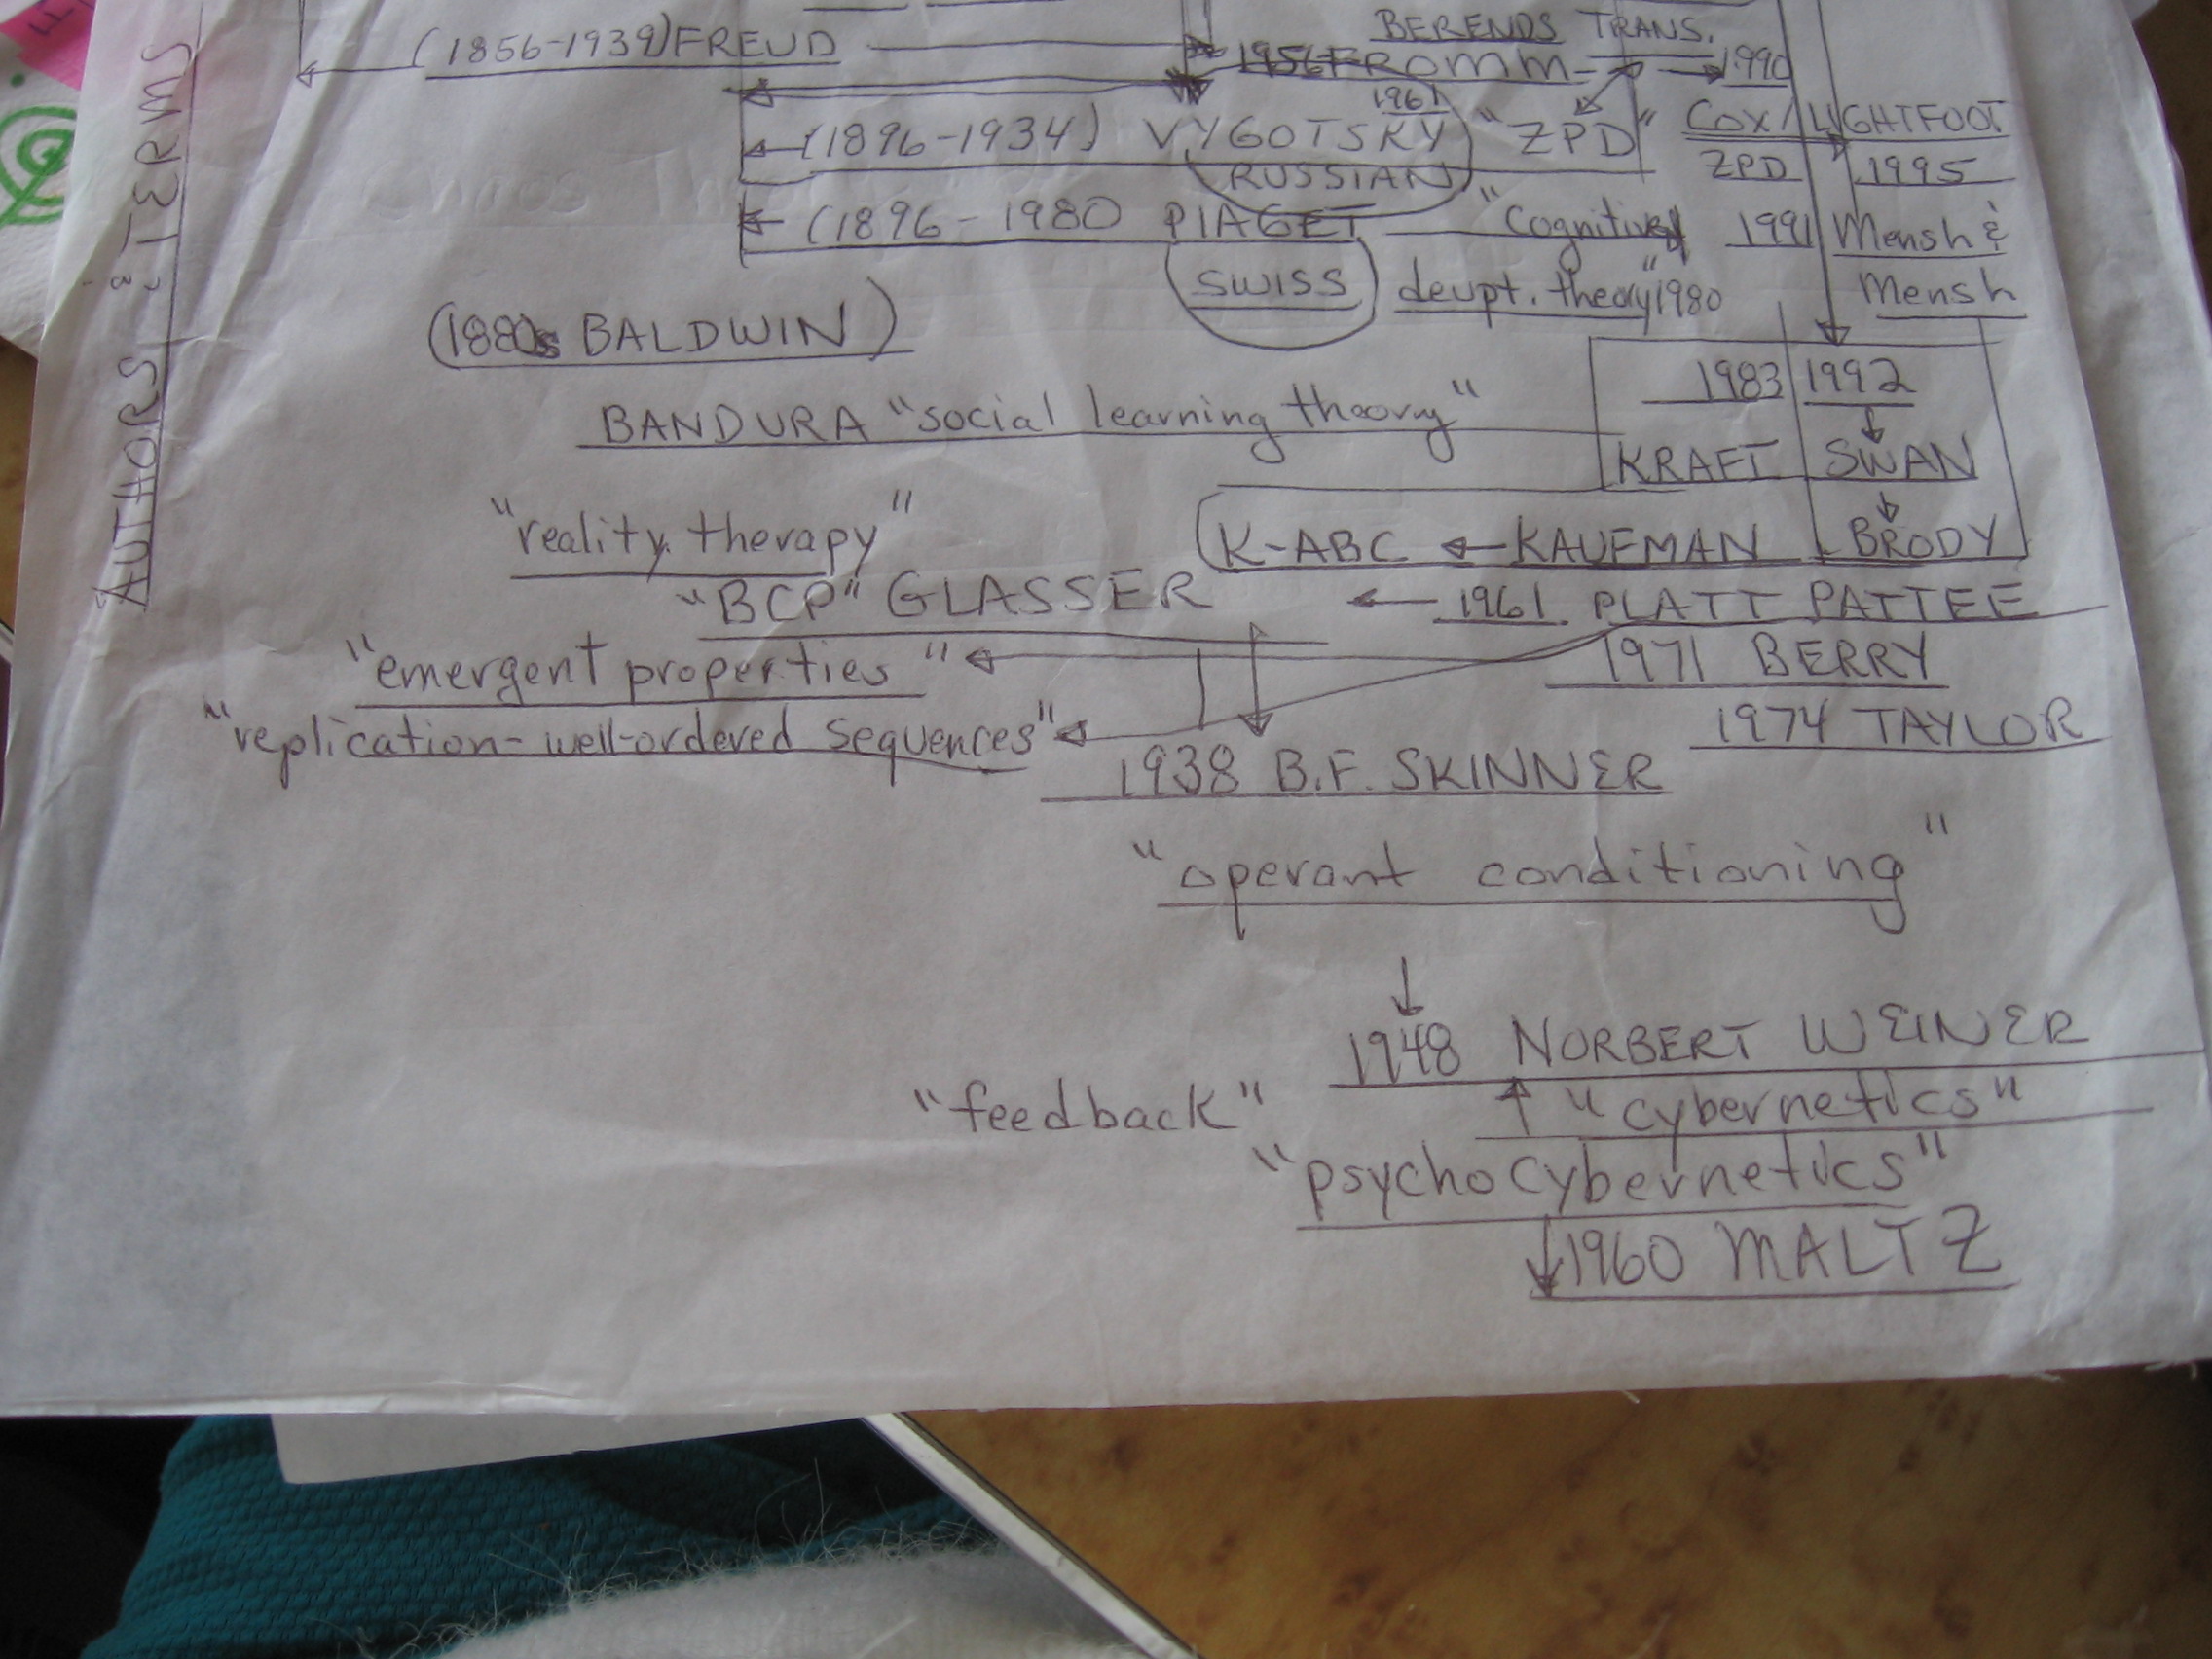 AUTHORS & TERMS
BERENDS TRANS.
(1856-1939) FREUD
1956 FROMM
1990
1961
(1896-1934) VYGOTSKY "ZPD"
COX/LIGHTFOOT
RUSSIAN
ZPD 1995
(1896-1980 PIAGET "Cognitive
1991 Mensh &
Mensh
SWISS devpt. theory" 1980
(1880s BALDWIN)
1983 1992
BANDURA "social learning theory"
KRAFT SWAN
"reality therapy"
K-ABC ← KAUFMAN BRODY
"BCP" GLASSER
← 1961 PLATT PATTEE
"emergent properties"
1971 BERRY
"replication-well-ordered sequences"
1974 TAYLOR
1938 B.F. SKINNER
"operant conditioning"
1948 NORBERT WEINER
"feedback" "cybernetics"
"psychocybernetics"
1960 MALTZ